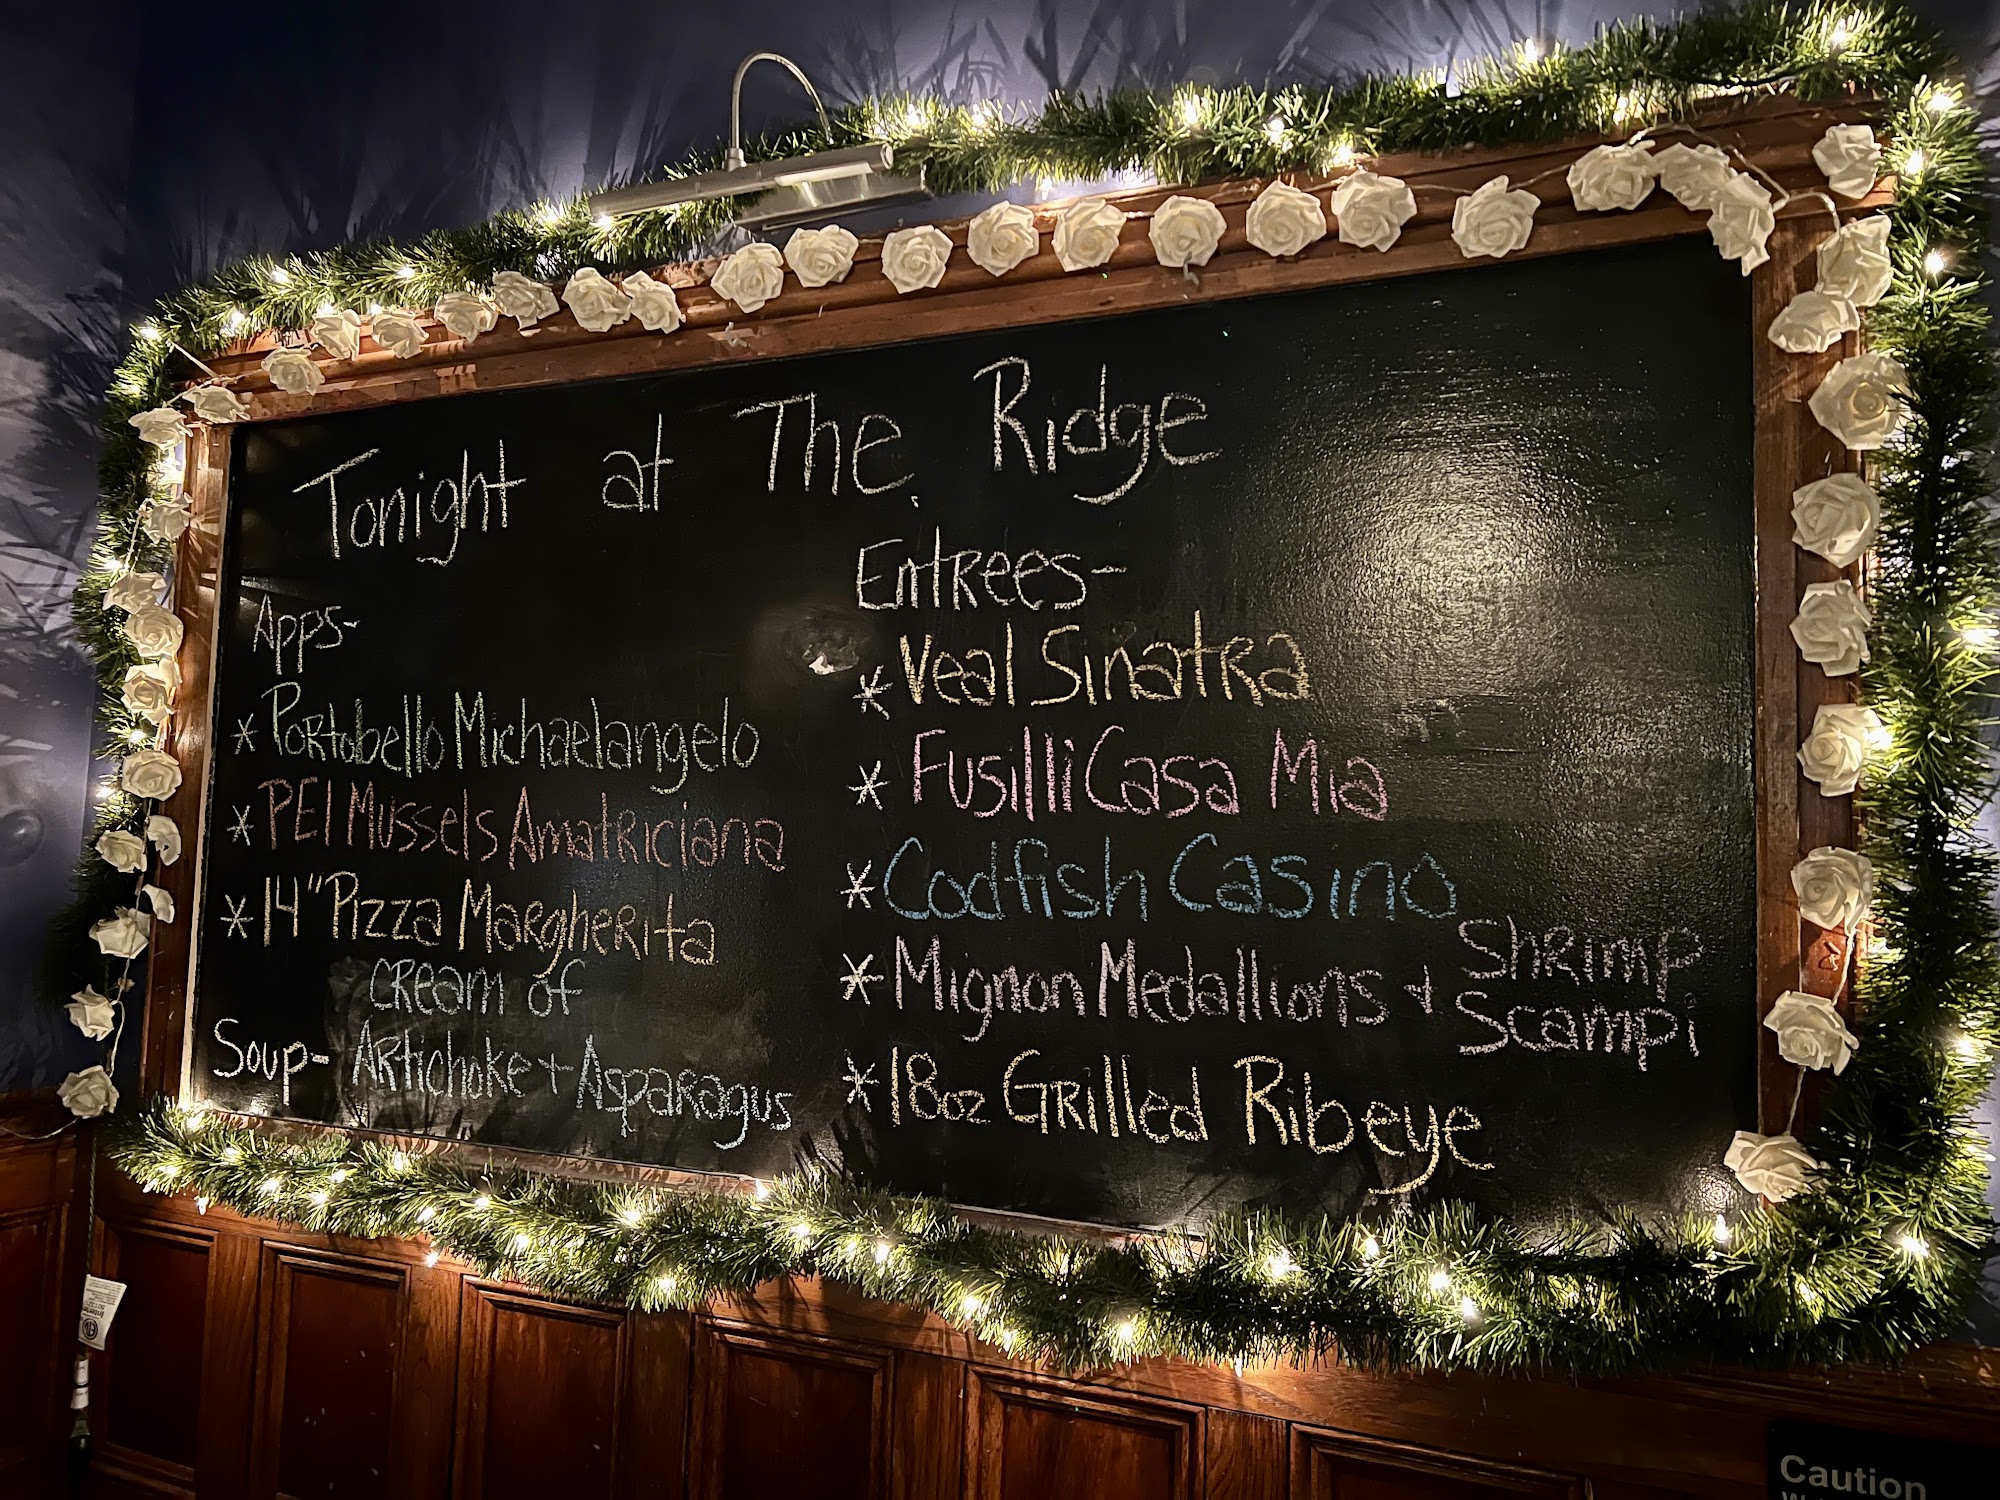 Tonight at The Ridge
Apps-
* Portobello Michaelangelo
* PEI Mussels Amatriciana
* 14" Pizza Margherita
cream of
Soup- Artichoke + Asparagus
Entrees-
* Veal Sinatra
* Fusilli Casa Mia
* Codfish Casino
* Mignon Medallions + Shrimp
Scampi
* 18oz Grilled Ribeye
Caution